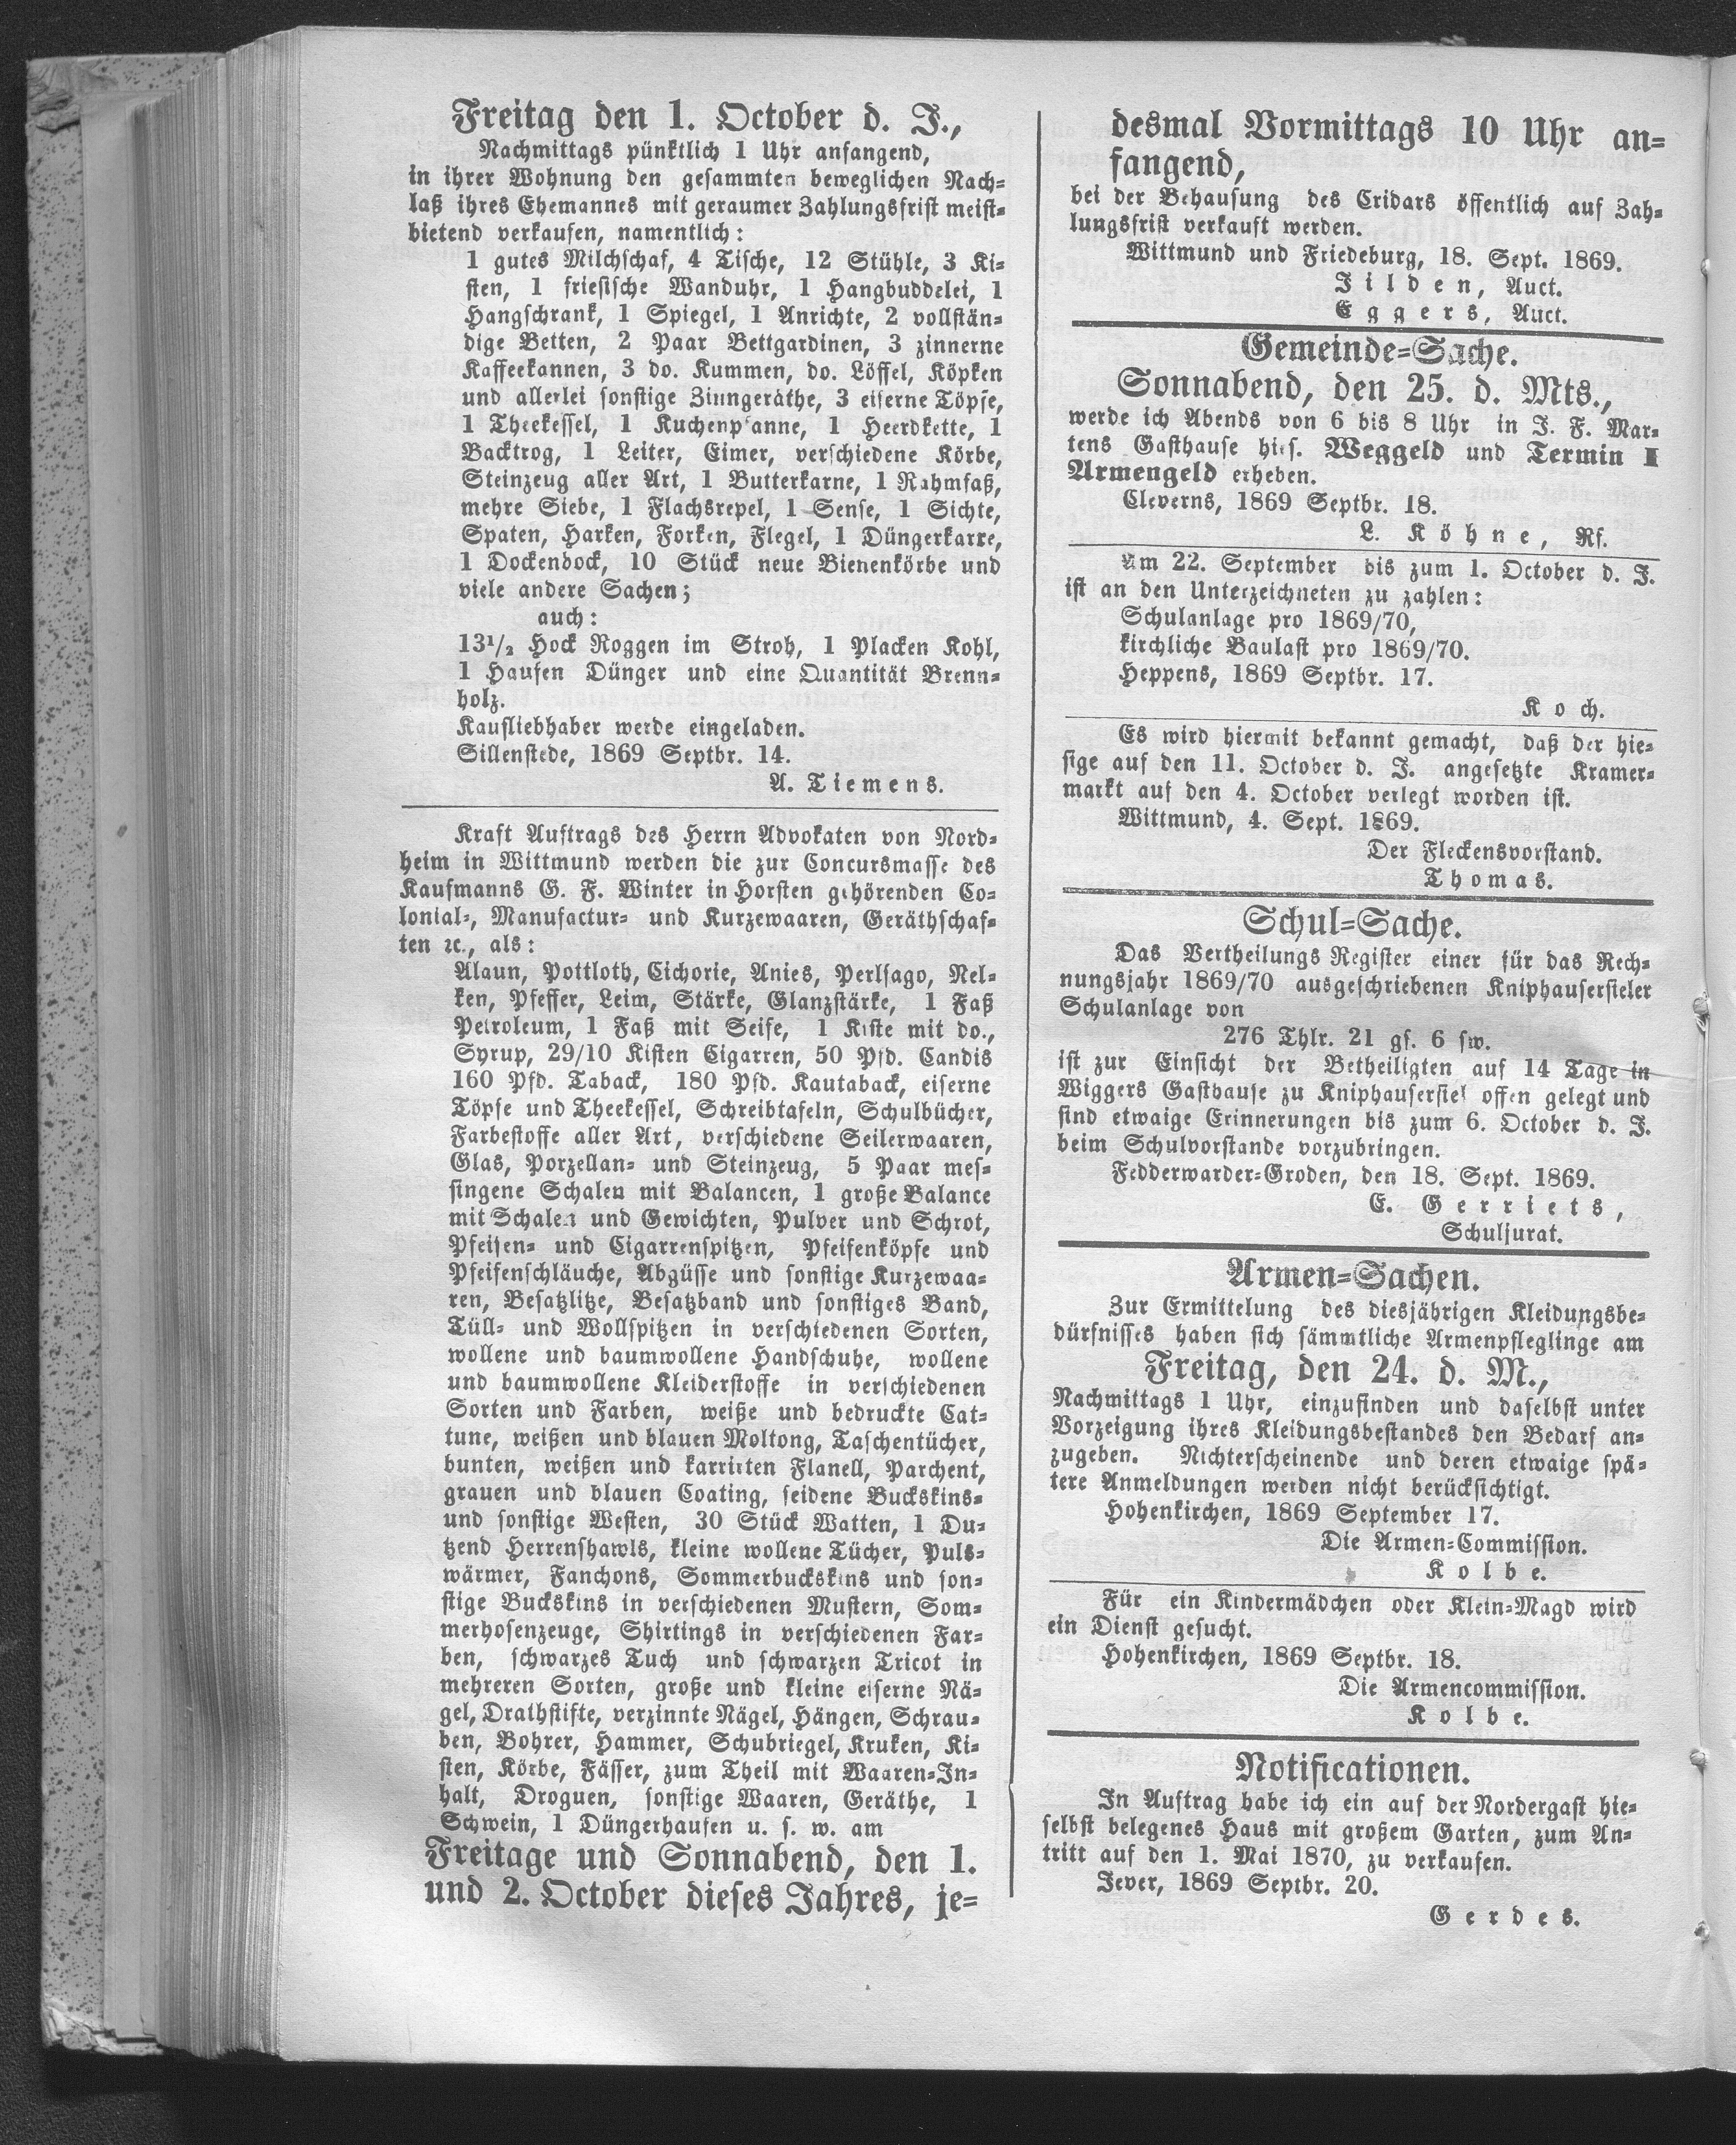 Freitag den 1. October d. J.,
Nachmittags pünktlich 1 Uhr anfangend,
in ihrer Wohnung den gesammten beweglichen Nach-
laß ihres Ehemannes mit geraumer Zahlungsfrist meist-
bietend verkaufen, namentlich:
1 gutes Milchschaf, 4 Tische, 12 Stühle, 3 Ki-
sten, 1 friesische Wanduhr, 1 Hangbuddelei, 1
Hangschrank, 1 Spiegel, 1 Anrichte, 2 vollstän-
dige Betten, 2 Paar Bettgardinen, 3 zinnerne
Kaffeekannen, 3 do. Kummen, do. Löffel, Köpken
und allerlei sonstige Zinngeräthe, 3 eiserne Töpfe,
1 Theekessel, 1 Kuchenpfanne, 1 Heerdkette, 1
Backtrog, 1 Leiter, Eimer, verschiedene Körbe,
Steinzeug aller Art, 1 Butterkarne, 1 Rahmfaß,
mehre Siebe, 1 Flachsrepel, 1 Sense, 1 Sichte,
Spaten, Harken, Forken, Flegel, 1 Düngerkarre,
1 Dockenbock, 10 Stück neue Bienenkörbe und
viele andere Sachen;
auch:
13½ Hock Roggen im Stroh, 1 Placken Kohl,
1 Haufen Dünger und eine Quantität Brenn-
holz.
Kaufliebhaber werde eingeladen.
Sillenstede, 1869 Septbr. 14.
A. Tiemens.
Kraft Auftrags des Herrn Advokaten von Nord-
heim in Wittmund werden die zur Concursmasse des
Kaufmanns G. F. Winter in Horsten gehörenden Co-
lonial-, Manufactur- und Kurzewaaren, Geräthschaf-
ten ꝛc., als:
Alaun, Pottloth, Cichorie, Anies, Perlsago, Nel-
ken, Pfeffer, Leim, Stärke, Glanzstärke, 1 Faß
Petroleum, 1 Faß mit Seife, 1 Kiste mit do.,
Syrup, 29/10 Kisten Cigarren, 50 Pfd. Candis
160 Pfd. Taback, 180 Pfd. Kautaback, eiserne
Töpfe und Theekessel, Schreibtafeln, Schulbücher,
Farbestoffe aller Art, verschiedene Seilerwaaren,
Glas, Porzellan- und Steinzeug, 5 Paar mes-
singene Schalen mit Balancen, 1 große Balance
mit Schalen und Gewichten, Pulver und Schrot,
Pfeifen- und Cigarrenspitzen, Pfeifenköpfe und
Pfeifenschläuche, Abgüsse und sonstige Kurzewaa-
ren, Besatzlitze, Besatzband und sonstiges Band,
Tüll- und Wollspitzen in verschiedenen Sorten,
wollene und baumwollene Handschuhe, wollene
und baumwollene Kleiderstoffe in verschiedenen
Sorten und Farben, weiße und bedruckte Cat-
tune, weißen und blauen Moltong, Taschentücher,
bunten, weißen und karrirten Flanell, Parchent,
grauen und blauen Coating, seidene Buckskins-
und sonstige Westen, 30 Stück Watten, 1 Du-
tzend Herrenshawls, kleine wollene Tücher, Puls-
wärmer, Fanchons, Sommerbuckskins und son-
stige Buckskins in verschiedenen Mustern, Som-
merhosenzeuge, Shirtings in verschiedenen Far-
ben, schwarzes Tuch und schwarzen Tricot in
mehreren Sorten, große und kleine eiserne Nä-
gel, Drathstifte, verzinnte Nägel, Hängen, Schrau-
ben, Bohrer, Hammer, Schubriegel, Kruken, Ki-
sten, Körbe, Fässer, zum Theil mit Waaren-In-
halt, Droguen, sonstige Waaren, Geräthe, 1
Schwein, 1 Düngerhaufen u. s. w. am
Freitage und Sonnabend, den 1.
und 2. October dieses Jahres, je-
desmal Vormittags 10 Uhr an-
fangend,
bei der Behausung des Cridars öffentlich auf Zah-
lungsfrist verkauft werden.
Wittmund und Friedeburg, 18. Sept. 1869.
Jilden, Auct.
Eggers, Auct.
Gemeinde-Sache.
Sonnabend, den 25. d. Mts.,
werde ich Abends von 6 bis 8 Uhr in J. F. Mar-
tens Gasthause hies. Weggeld und Termin I
Armengeld erheben.
Cleverns, 1869 Septbr. 18.
L. Köhne, Rf.
Am 22. September bis zum 1. October d. J.
ist an den Unterzeichneten zu zahlen:
Schulanlage pro 1869/70,
kirchliche Baulast pro 1869/70.
Heppens, 1869 Septbr. 17.
Koch.
Es wird hiermit bekannt gemacht, daß der hie-
sige auf den 11. October d. J. angesetzte Kramer-
markt auf den 4. October verlegt worden ist.
Wittmund, 4. Sept. 1869.
Der Fleckensvorstand.
Thomas.
Schul-Sache.
Das Vertheilungs Register einer für das Rech-
nungsjahr 1869/70 ausgeschriebenen Kniphausersieler
Schulanlage von
276 Thlr. 21 gs. 6 sw.
ist zur Einsicht der Betheiligten auf 14 Tage in
Wiggers Gasthause zu Kniphausersiel offen gelegt und
sind etwaige Erinnerungen bis zum 6. October d. J.
beim Schulvorstande vorzubringen.
Fedderwarder-Groden, den 18. Sept. 1869.
E. Gerriets,
Schuljurat.
Armen-Sachen.
Zur Ermittelung des diesjährigen Kleidungsbe-
dürfnisses haben sich sämmtliche Armenpfleglinge am
Freitag, den 24. d. M.,
Nachmittags 1 Uhr, einzufinden und daselbst unter
Vorzeigung ihres Kleidungsbestandes den Bedarf an-
zugeben. Nichterscheinende und deren etwaige spä-
tere Anmeldungen werden nicht berücksichtigt.
Hohenkirchen, 1869 September 17.
Die Armen-Commission.
Kolbe.
Für ein Kindermädchen oder Klein-Magd wird
ein Dienst gesucht.
Hohenkirchen, 1869 Septbr. 18.
Die Armencommission.
Kolbe.
Notificationen.
In Auftrag habe ich ein auf der Nordergast hie-
selbst belegenes Haus mit großem Garten, zum An-
tritt auf den 1. Mai 1870, zu verkaufen.
Jever, 1869 Septbr. 20.
Gerdes.